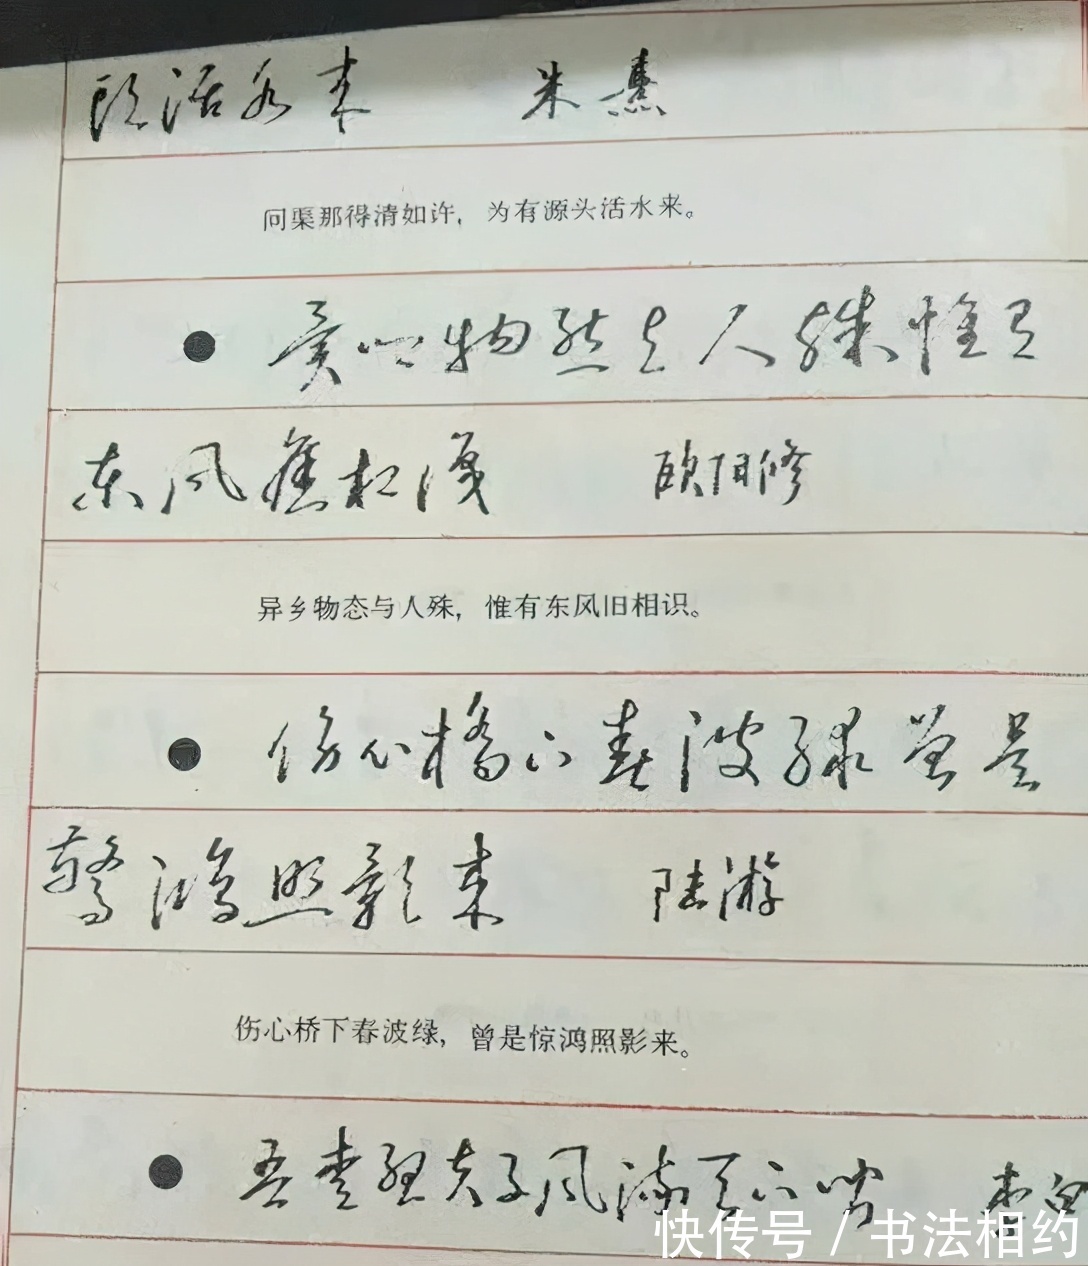 頭活水来 朱熹
问渠那得清如许，为有源头活水来。
異乡物態与人殊惟有
东风舊相識 欧阳修
异乡物态与人殊，惟有东风旧相识。
傷心橋下春波綠曾是
驚鴻照影来 陆游
伤心桥下春波绿，曾是惊鸿照影来。
吾爱孟夫子风流天下闻 李白
快传号 / 书法相约